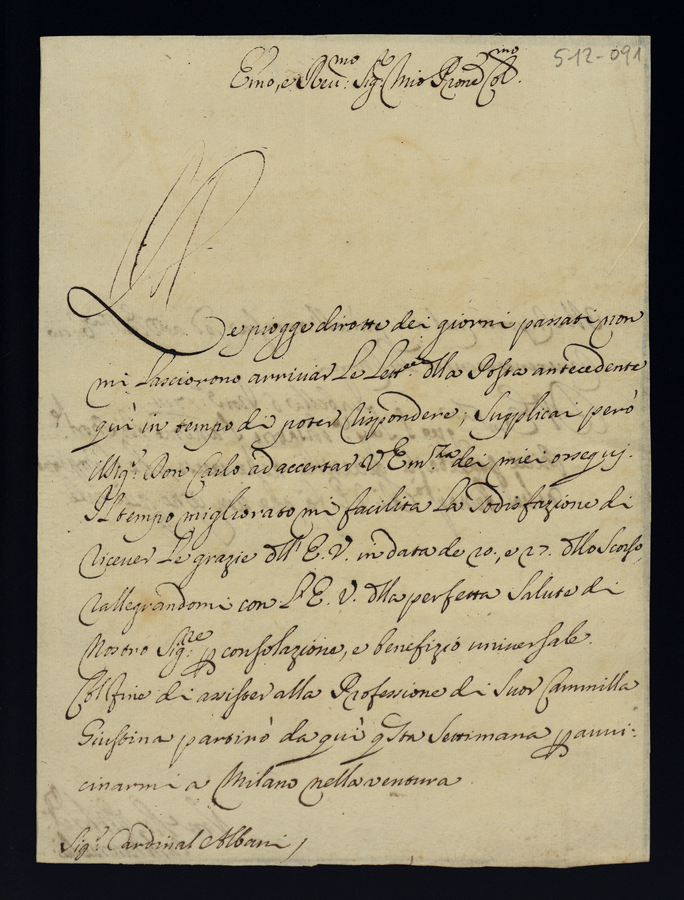 5-12-091
Emo, e Reu:mo Sig:re Mio Prone Col:mo
Le piogge dirotte dei giorni passati non
mi lasciorono arrivar le Lett:re dlla Posta antecedente
quì in tempo di poter rispondere; supplicai però
il Sig:r Don Carlo ad accertar V. Em:za dei miei ossequj.
Il tempo migliorato mi facilita la sodisfazione di
ricever le grazie dll' E. V. in data de 20., e 27. dllo scorso,
rallegrandomi con l'E. V. dlla perfetta salute di
Nostro Sig:re p consolazione, e benefizio universale.
Col fine di assister alla Professione di Suor Cammilla
Giustina partirò da quì qsta settimana p auui:
cinarmi a Milano nella ventura
Sig:r Cardinal Albani /